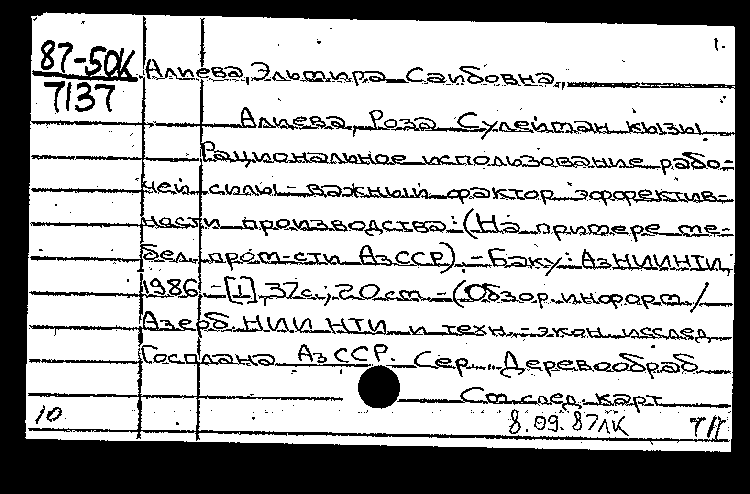 1.
87-50К
7137
Алиева, Эльмира Саибовна,
Алиева, Роза Сулейман кызы
Рациональное использование рабо-
чей силы - важный фактор эффектив-
ности производства: (На примере ме-
бел. пром-сти АзССР). - Баку: АзНИИНТИ,
1986. - [1], 37с.; 20 см. - (Обзор. информ. /
Азерб. НИИ НТИ и техн.-экон. исслед.
Госплана АзССР. Сер. "Деревообраб.
См. след. карт.
10
8.09.87ЛК
ТП